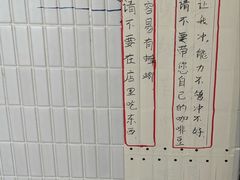 请不要在店里吃东西
容易有蟑螂
请不要带您自己的咖啡豆
让我冲,能力不够冲不好